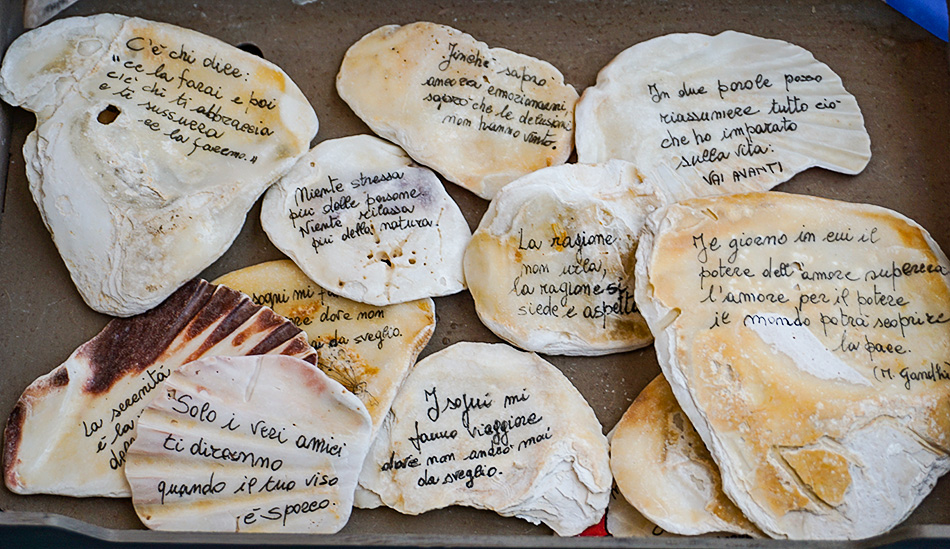 C'è chi dice:
"ce la farai e poi
c'è chi ti abbraccia
e ti sussurra
ce la faremo."
Finché saprò
ancora emozionarmi
saprò che le delusioni
non hanno vinto.
In due parole posso
riassumere tutto ciò
che ho imparato
sulla vita:
VAI AVANTI
Niente stressa
più delle persone.
Niente rilassa
più della natura.
La ragione
non urla,
la ragione si
siede e aspetta
Il giorno in cui il
potere dell'amore supererà
l'amore per il potere
il mondo potrà scoprire
la pace.
(M. Gandhi
sogni mi
dove non
da sveglio.
La serenità
è la
Solo i veri amici
ti diranno
quando il tuo viso
è sporco.
I sogni mi
fanno viaggiare
dove non andrò mai
da sveglio.